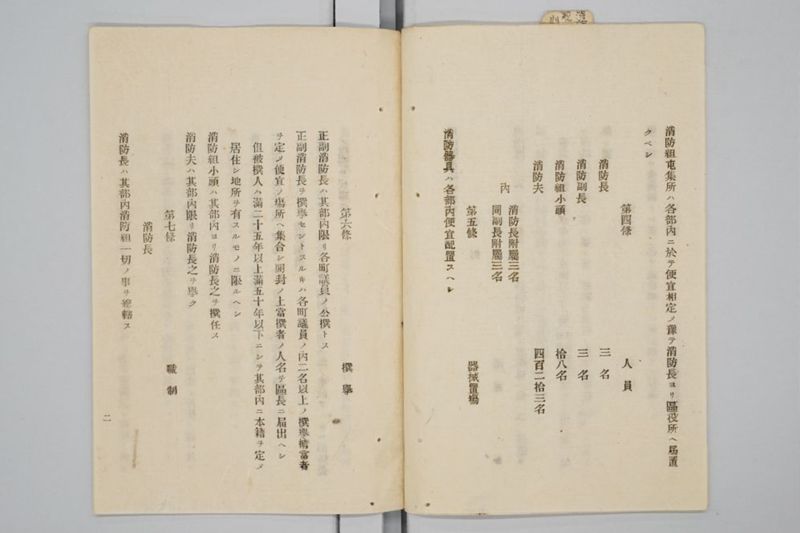 消防組屯集所ハ各部内ニ於テ便宜相定メ豫テ消防長ヨリ區役所ヘ屆置
クベシ
第四條 人員
消防長 三名
消防副長 三名
消防組小頭 拾八名
消防夫 四百二拾三名
内 消防長附屬三名
同副長附屬三名
第五條 器械置場
消防器具ハ各部内便宜配置スヘシ
第六條 撰擧
正副消防長ハ其部内限リ各町議員ノ公撰トス
正副消防長ヲ撰擧セントスルキハ各町議員ノ内二名以上ノ撰擧擔當者
ヲ定メ便宜ノ塲所ヘ集合シ開封ノ上當撰者ノ人名ヲ區長ニ屆出ヘシ
但被撰人ハ滿二十五年以上滿五十年以下ニシテ其部内ニ本籍ヲ定メ
居住シ地所ヲ有スルモノニ限ルヘシ
消防組小頭ハ其部内ヨリ消防長之ヲ撰任ス
消防夫ハ其部内限リ消防長之ヲ擧ク
第七條 職制
消防長
消防長ハ其部内消防組一切ノ事ヲ總轄ス
二